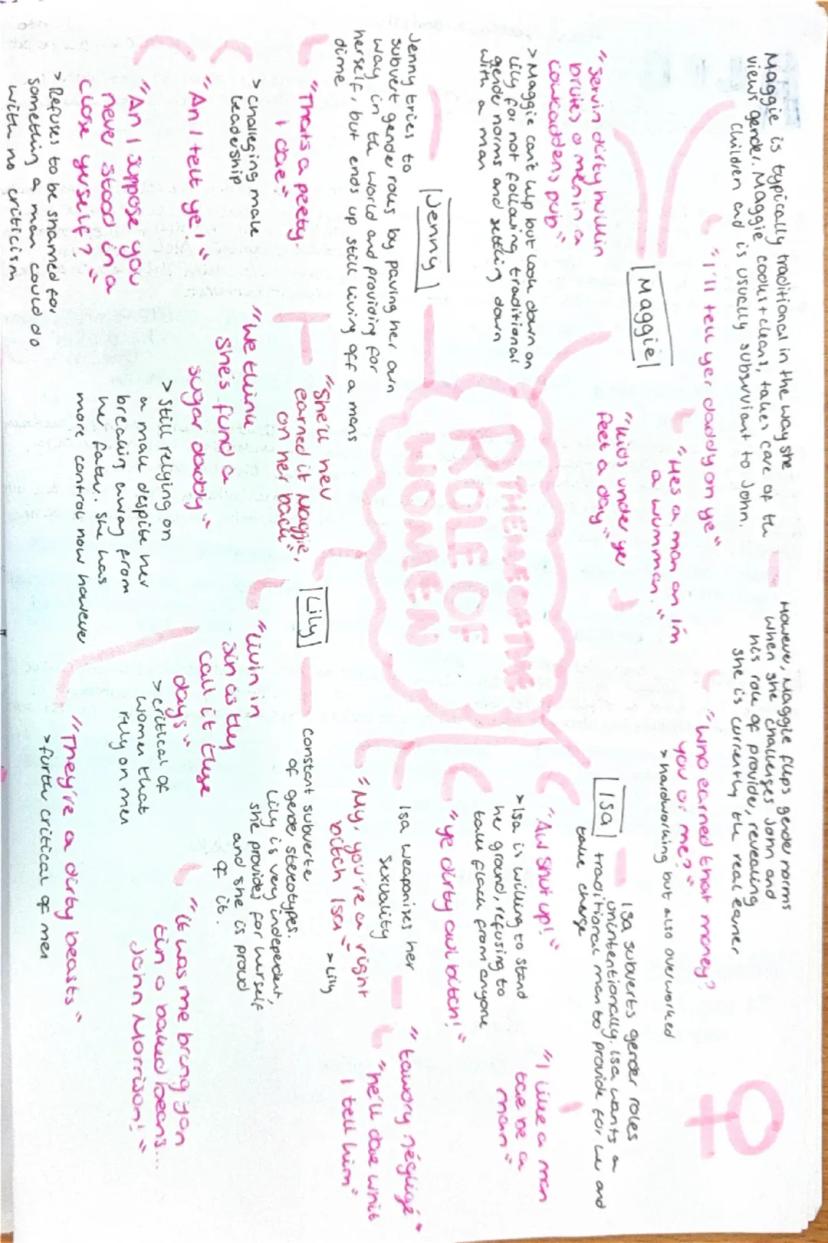 THEME OF THE
ROLE OF
WOMEN
Maggie
Maggie is typically traditional in the way she
views gender. Maggie cooks+cleans, takes care of the
children and is usually subservient to John.
However, Maggie flips gender norms
when she challenges John and
his role of provider, revealing
she is currently the real earner
"I'll tell yer daddy on ye"
"He's a man an I'm
a wumman."
"Who earned that money?
you or me?"
> hardworking but also overworked
"kids under yer
feet a day"
"Servin dirty hulkin
brutes o men in a
Cowcaddens pub"
> Maggie can't help but look down on
Lily for not following traditional
gender norms and settling down
with a man
Isa
Isa subverts gender roles
unintentionally. Isa wants a
traditional man to provide for her and
take charge
"Aw shut up!"
> Isa is willing to stand
her ground, refusing to
take flack from anyone
"I like a man
tae be a
man"
"ye dirty owl bitch!"
Isa weaponises her
sexuality
"tawdry négligé"
"he'll dae whit
I tell him"
"My, you're a right
bitch Isa"
> Lily
Jenny
Jenny tries to
subvert gender roles by paving her own
way in the world and providing for
herself, but ends up still living off a mans
dime
"Thats a peety.
I dae"
> challenging male
leadership
"An I tell ye!"
"An I suppose you
never stood in a
close yerself!"
> Refuses to be shamed for
something a man could do
with no criticism
"She'll hev
earned it Maggie,
on her back"
"We think
she's fund a
sugar daddy"
> Still relying on
a male despite her
breaking away from
her father. she has
more control now however
Lily
constant subverte
of gender stereotypes.
Lily is very independent,
she provides for herself
and she is proud
of it.
"Livin in
sin as they
call it these
days"
> critical of
women that
rely on men
"it was me brung yon
tin o baked beans...
John Morrison!"
"They're a dirty beasts"
> further critical of men